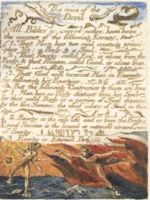 The voice of the
Devil
All Bibles or sacred codes, have been
the causes of the following Errors.
1. That Man has two real existing princi
Body & a Soul.
2. That Energy, is alone from the
Body & that Reason, call'd Good, is alone from
the Soul.
3. That God will torment Man in Eternity
for following his Energies.
But the following Contraries to these are True
1 Man has no Body distinct from his Soul
for that call'd Body is a portion of Soul discern'd
by the five Senses, the chief inlets of Soul in this
age
2 Energy is the only life and is from the Body
and Reason is the bound or outward circumference
of Energy.
3 Energy is Eternal Delight